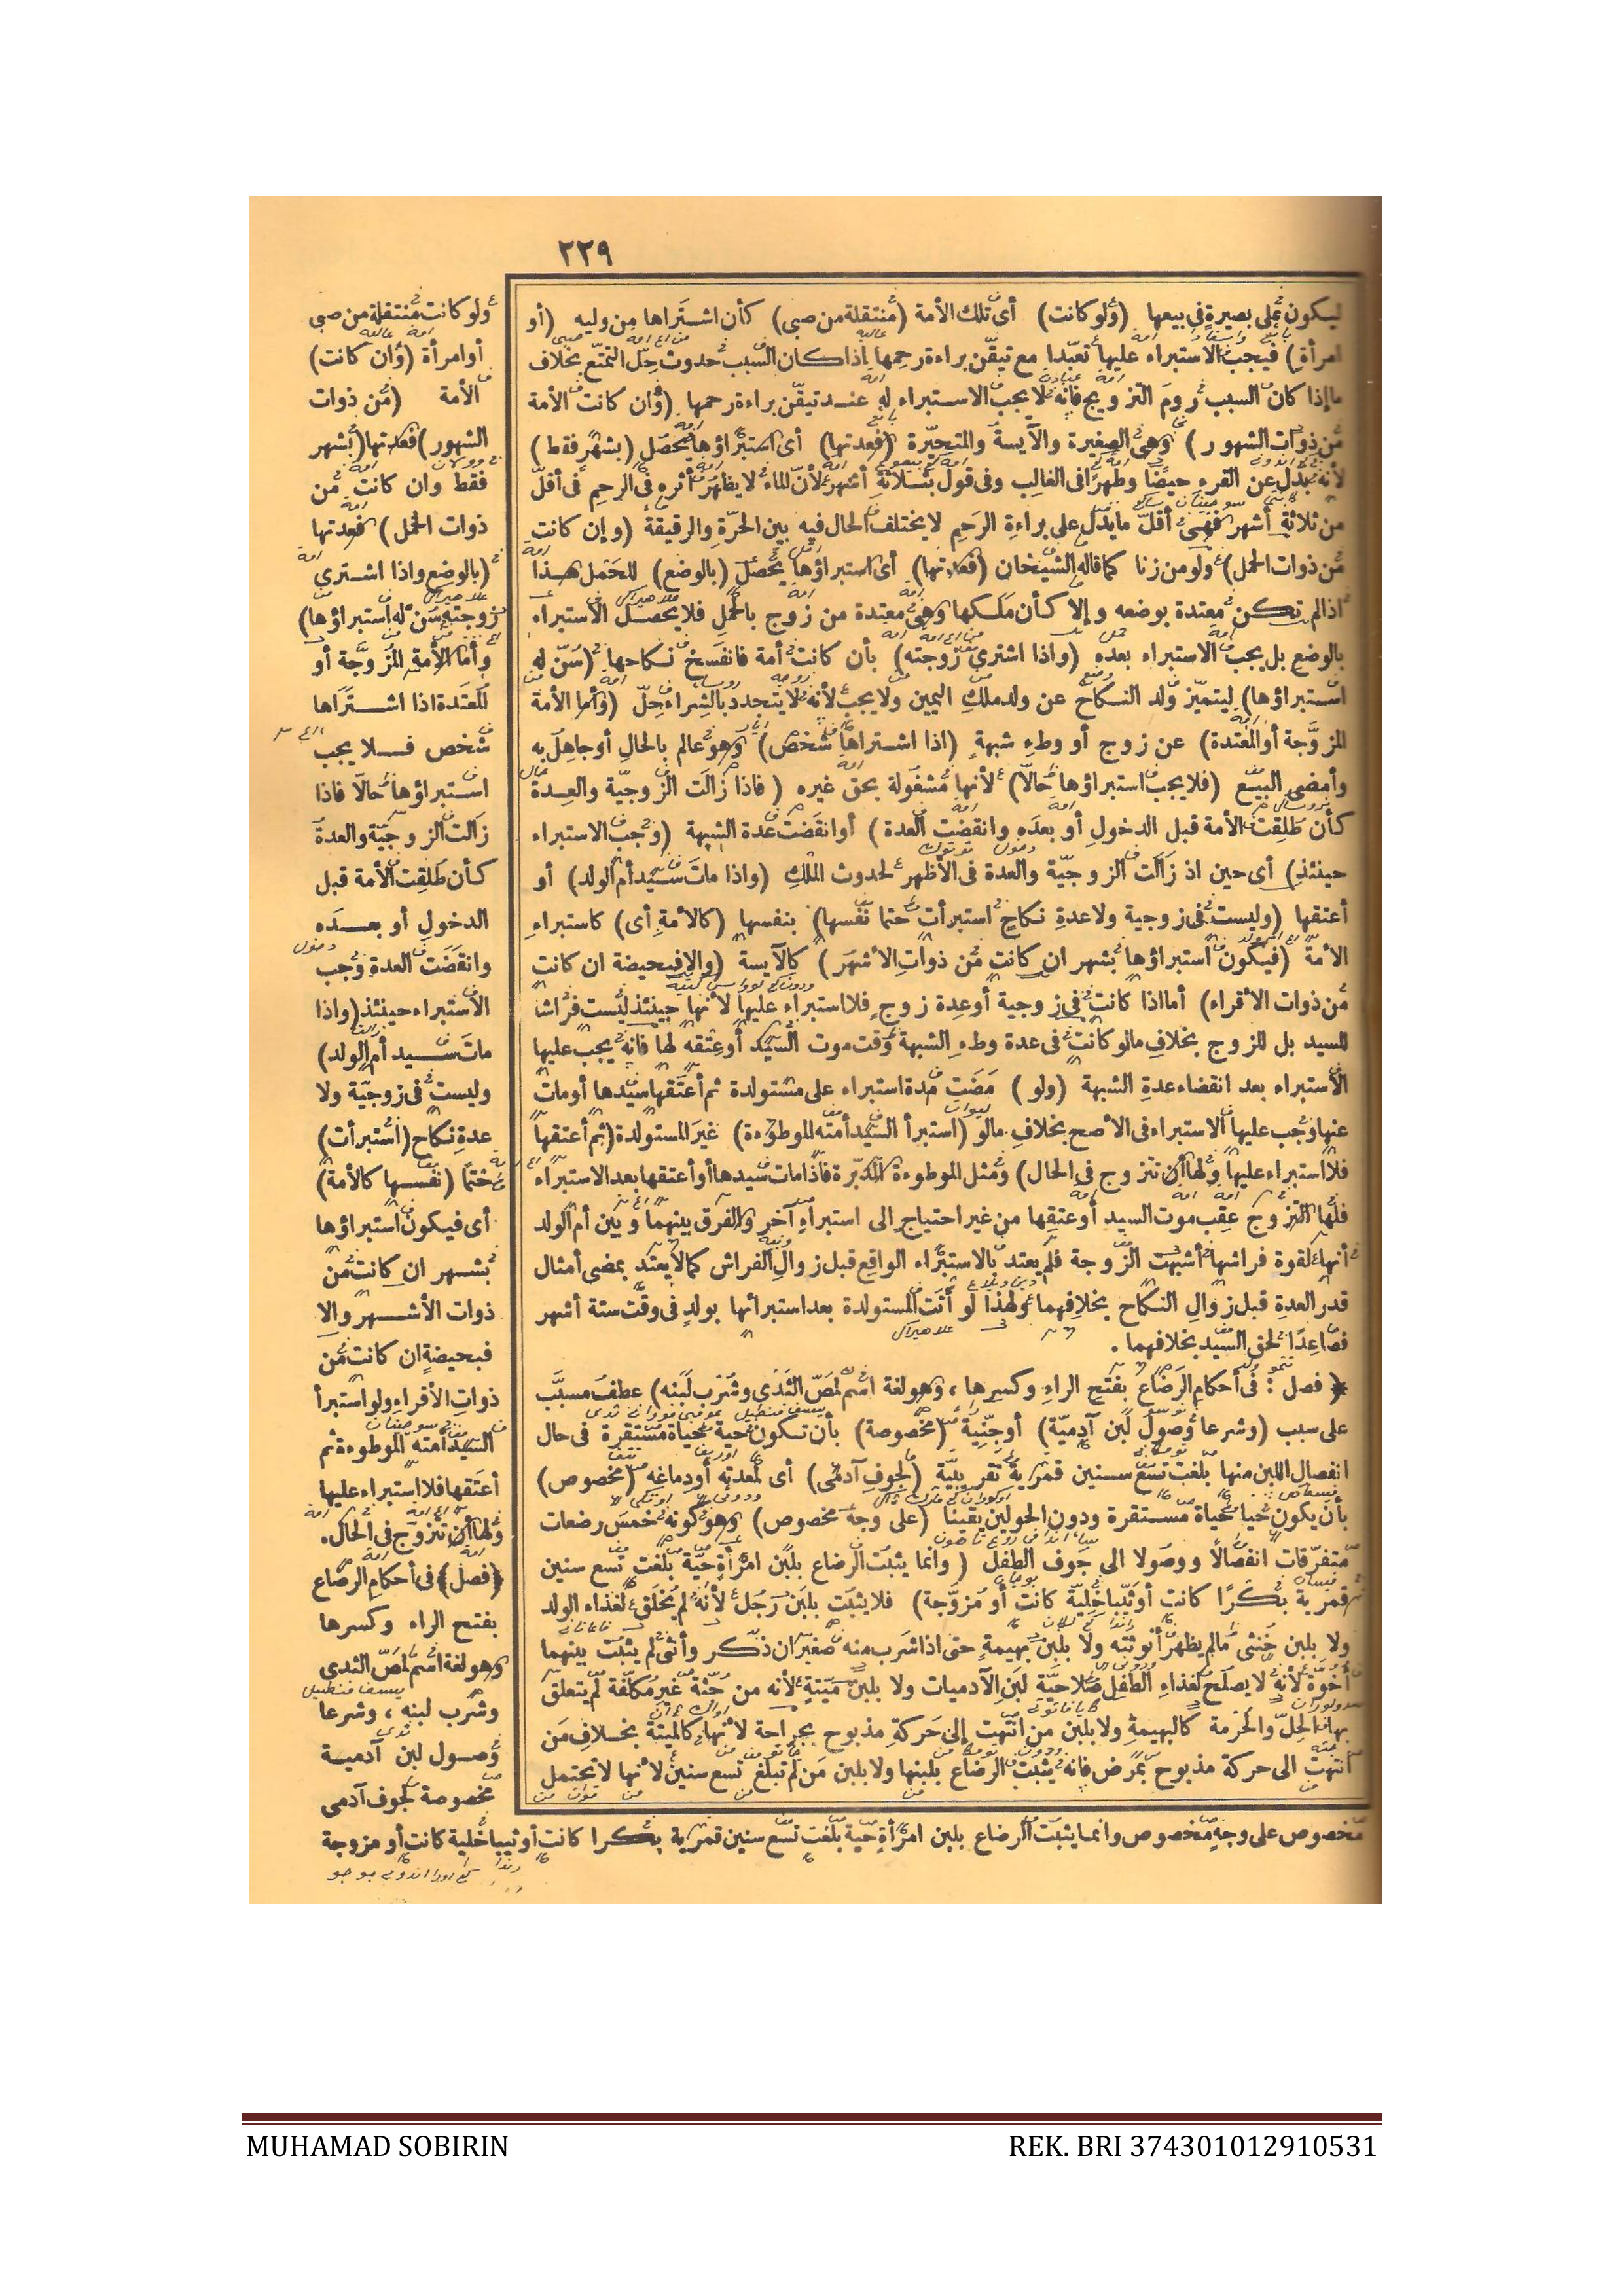 ٢٢٩
ليكون على بصيرة في بيعها (ولو كانت) أى تلك الأمة (منتقلة من صبى) كأن اشتراها من وليه (أو
امرأة) فيجب الاستبراء عليها تعبدا مع تيقن براءة رحمها اذا كان السبب حدوث حل التمتع بخلاف
ما إذا كان السبب روم التزويج فانه لا يجب الاستبراء له عند تيقن براءة رحمها (وان كانت الأمة
من ذوات الشهور) وهي الصغيرة والآيسة والمتحيرة (فعدتها) أى استبراؤها يحصل (بشهر فقط)
لأنه بدل عن القرء حيضا وطهرا فى الغالب وفى قول بثلاثة أشهر لأن الماء لا يظهر أثره فى الرحم فى أقل
من ثلاثة أشهر فهى أقل ما يدل على براءة الرحم لا يختلف الحال فيه بين الحرة والرقيقة (وإن كانت
من ذوات الحمل) ولو من زنا كما قاله الشيخان (فعدتها) أى استبراؤها يحصل (بالوضع) للحمل هذا
اذا لم تكن معتدة بوضعه وإلا كأن ملكها وهى معتدة من زوج بالحمل فلا يحصل الاستبراء
بالوضع بل يجب الاستبراء بعده (واذا اشترى زوجته) بأن كانت أمة فانفسخ نكاحها (سن له
استبراؤها) ليتميز ولد النكاح عن ولد ملك اليمين ولا يجب لأنه لا يتجدد بالشراء حل (وأما الأمة
المزوجة أو المعتدة) عن زوج أو وطء شبهة (اذا اشتراها شخص) وهو عالم بالحال أو جاهل به
وأمضى البيع (فلا يجب استبراؤها حالا) لأنها مشغولة بحق غيره (فاذا زالت الزوجية والعدة
كأن طلقت الأمة قبل الدخول أو بعده وانقضت العدة) أو انقضت عدة الشبهة (وجب الاستبراء
حينئذ) أى حين اذ زالت الزوجية والعدة فى الأظهر لحدوث الملك (واذا مات سيد أم الولد) أو
أعتقها (وليست فى زوجية ولا عدة نكاح استبرأت حتما نفسها) بنفسها (كالأمة أى) كاستبراء
الأمة (فيكون استبراؤها بشهر ان كانت من ذوات الأشهر) كالآيسة (والا فبحيضة ان كانت
من ذوات الأقراء) أما اذا كانت فى زوجية أو عدة زوج فلا استبراء عليها لأنها حينئذ ليست فراشا
للسيد بل للزوج بخلاف ما لو كانت فى عدة وطء الشبهة وقت موت السيد أو عتقه لها فانه يجب عليها
الاستبراء بعد انقضاء عدة الشبهة (ولو) مضت مدة استبراء على مستولدة ثم أعتقها سيدها أو مات
عنها وجب عليها الاستبراء فى الأصح بخلاف ما لو (استبرأ السيد أمته الموطوءة) غير المستولدة (ثم أعتقها
فلا استبراء عليها ولها أن تتزوج فى الحال) ومثل الموطوءة المدبرة فاذا مات سيدها أو أعتقها بعد الاستبراء
فلها التزوج عقب موت السيد أو عتقها من غير احتياج الى استبراء آخر والفرق بينهما وبين أم الولد
أنها لقوة فراشها أشبهت الزوجة فلم يعتد بالاستبراء الواقع قبل زوال الفراش كما لا يعتد بمضى أمثال
قدر العدة قبل زوال النكاح بخلافهما ولهذا لو أتت المستولدة بعد استبرائها بولد فى وقت ستة أشهر
فصاعدا لحق السيد بخلافهما .
﴿فصل : فى أحكام الرضاع بفتح الراء وكسرها ، وهو لغة اسم لمص الثدى وشرب لبنه) عطف مسبب
على سبب (وشرعا وصول لبن آدمية) أو جنية (مخصوصة) بأن تكون حية حياة مستقرة فى حال
انفصال اللبن منها بلغت تسع سنين قمرية تقريبية (لجوف آدمى) أى لمعدته أو دماغه (مخصوص)
بأن يكون حيا حياة مستقرة ودون الحولين يقينا (على وجه مخصوص) وهو كونه خمس رضعات
متفرقات انفصالا ووصولا الى جوف الطفل (وانما يثبت الرضاع بلبن امرأة حية بلغت تسع سنين
قمرية بكرا كانت أو ثيبا خلية كانت أو مزوجة) فلا يثبت بلبن رجل لأنه لم يخلق لغذاء الولد
ولا بلبن خنثى ما لم يظهر أنوثته ولا بلبن بهيمة حتى اذا شرب منه صغيران ذكر وأنثى لم يثبت بينهما
أخوة لأنه لا يصلح لغذاء الطفل صلاحية لبن الآدميات ولا بلبن ميتة لأنه من جثة غير مكلفة لم يتعلق
بها الحل والحرمة كالبهيمة ولا بلبن من انتهت إلى حركة مذبوح بجراحة لأنها كالميتة بخلاف من
انتهت الى حركة مذبوح بمرض فانه يثبت الرضاع بلبنها ولا بلبن من لم تبلغ تسع سنين لأنها لا تحتمل
ولو كانت منتقلة من صبى
أو امرأة (وان كانت)
الأمة (من ذوات
الشهور) فعدتها (بشهر
فقط وان كانت من
ذوات الحمل) فعدتها
(بالوضع واذا اشترى
زوجته سن له استبراؤها)
وأما الأمة المزوجة أو
المعتدة اذا اشتراها
شخص فلا يجب
استبراؤها حالا فاذا
زالت الزوجية والعدة
كأن طلقت الأمة قبل
الدخول أو بعده
وانقضت العدة وجب
الاستبراء حينئذ (واذا
مات سيد أم الولد)
وليست فى زوجية ولا
عدة نكاح (استبرأت)
حتما (نفسها كالأمة)
أى فيكون استبراؤها
بشهر ان كانت من
ذوات الأشهر والا
فبحيضة ان كانت من
ذوات الأقراء ولو استبرأ
السيد أمته الموطوءة ثم
أعتقها فلا استبراء عليها
ولها أن تتزوج فى الحال.
﴿فصل﴾ فى أحكام الرضاع
بفتح الراء وكسرها
وهو لغة اسم لمص الثدى
وشرب لبنه ، وشرعا
وصول لبن آدمية
مخصوصة لجوف آدمى
مخصوص على وجه مخصوص وانما يثبت الرضاع بلبن امرأة حية بلغت تسع سنين قمرية بكرا كانت أو ثيبا خلية كانت أو مزوجة
MUHAMAD SOBIRIN
REK. BRI 374301012910531